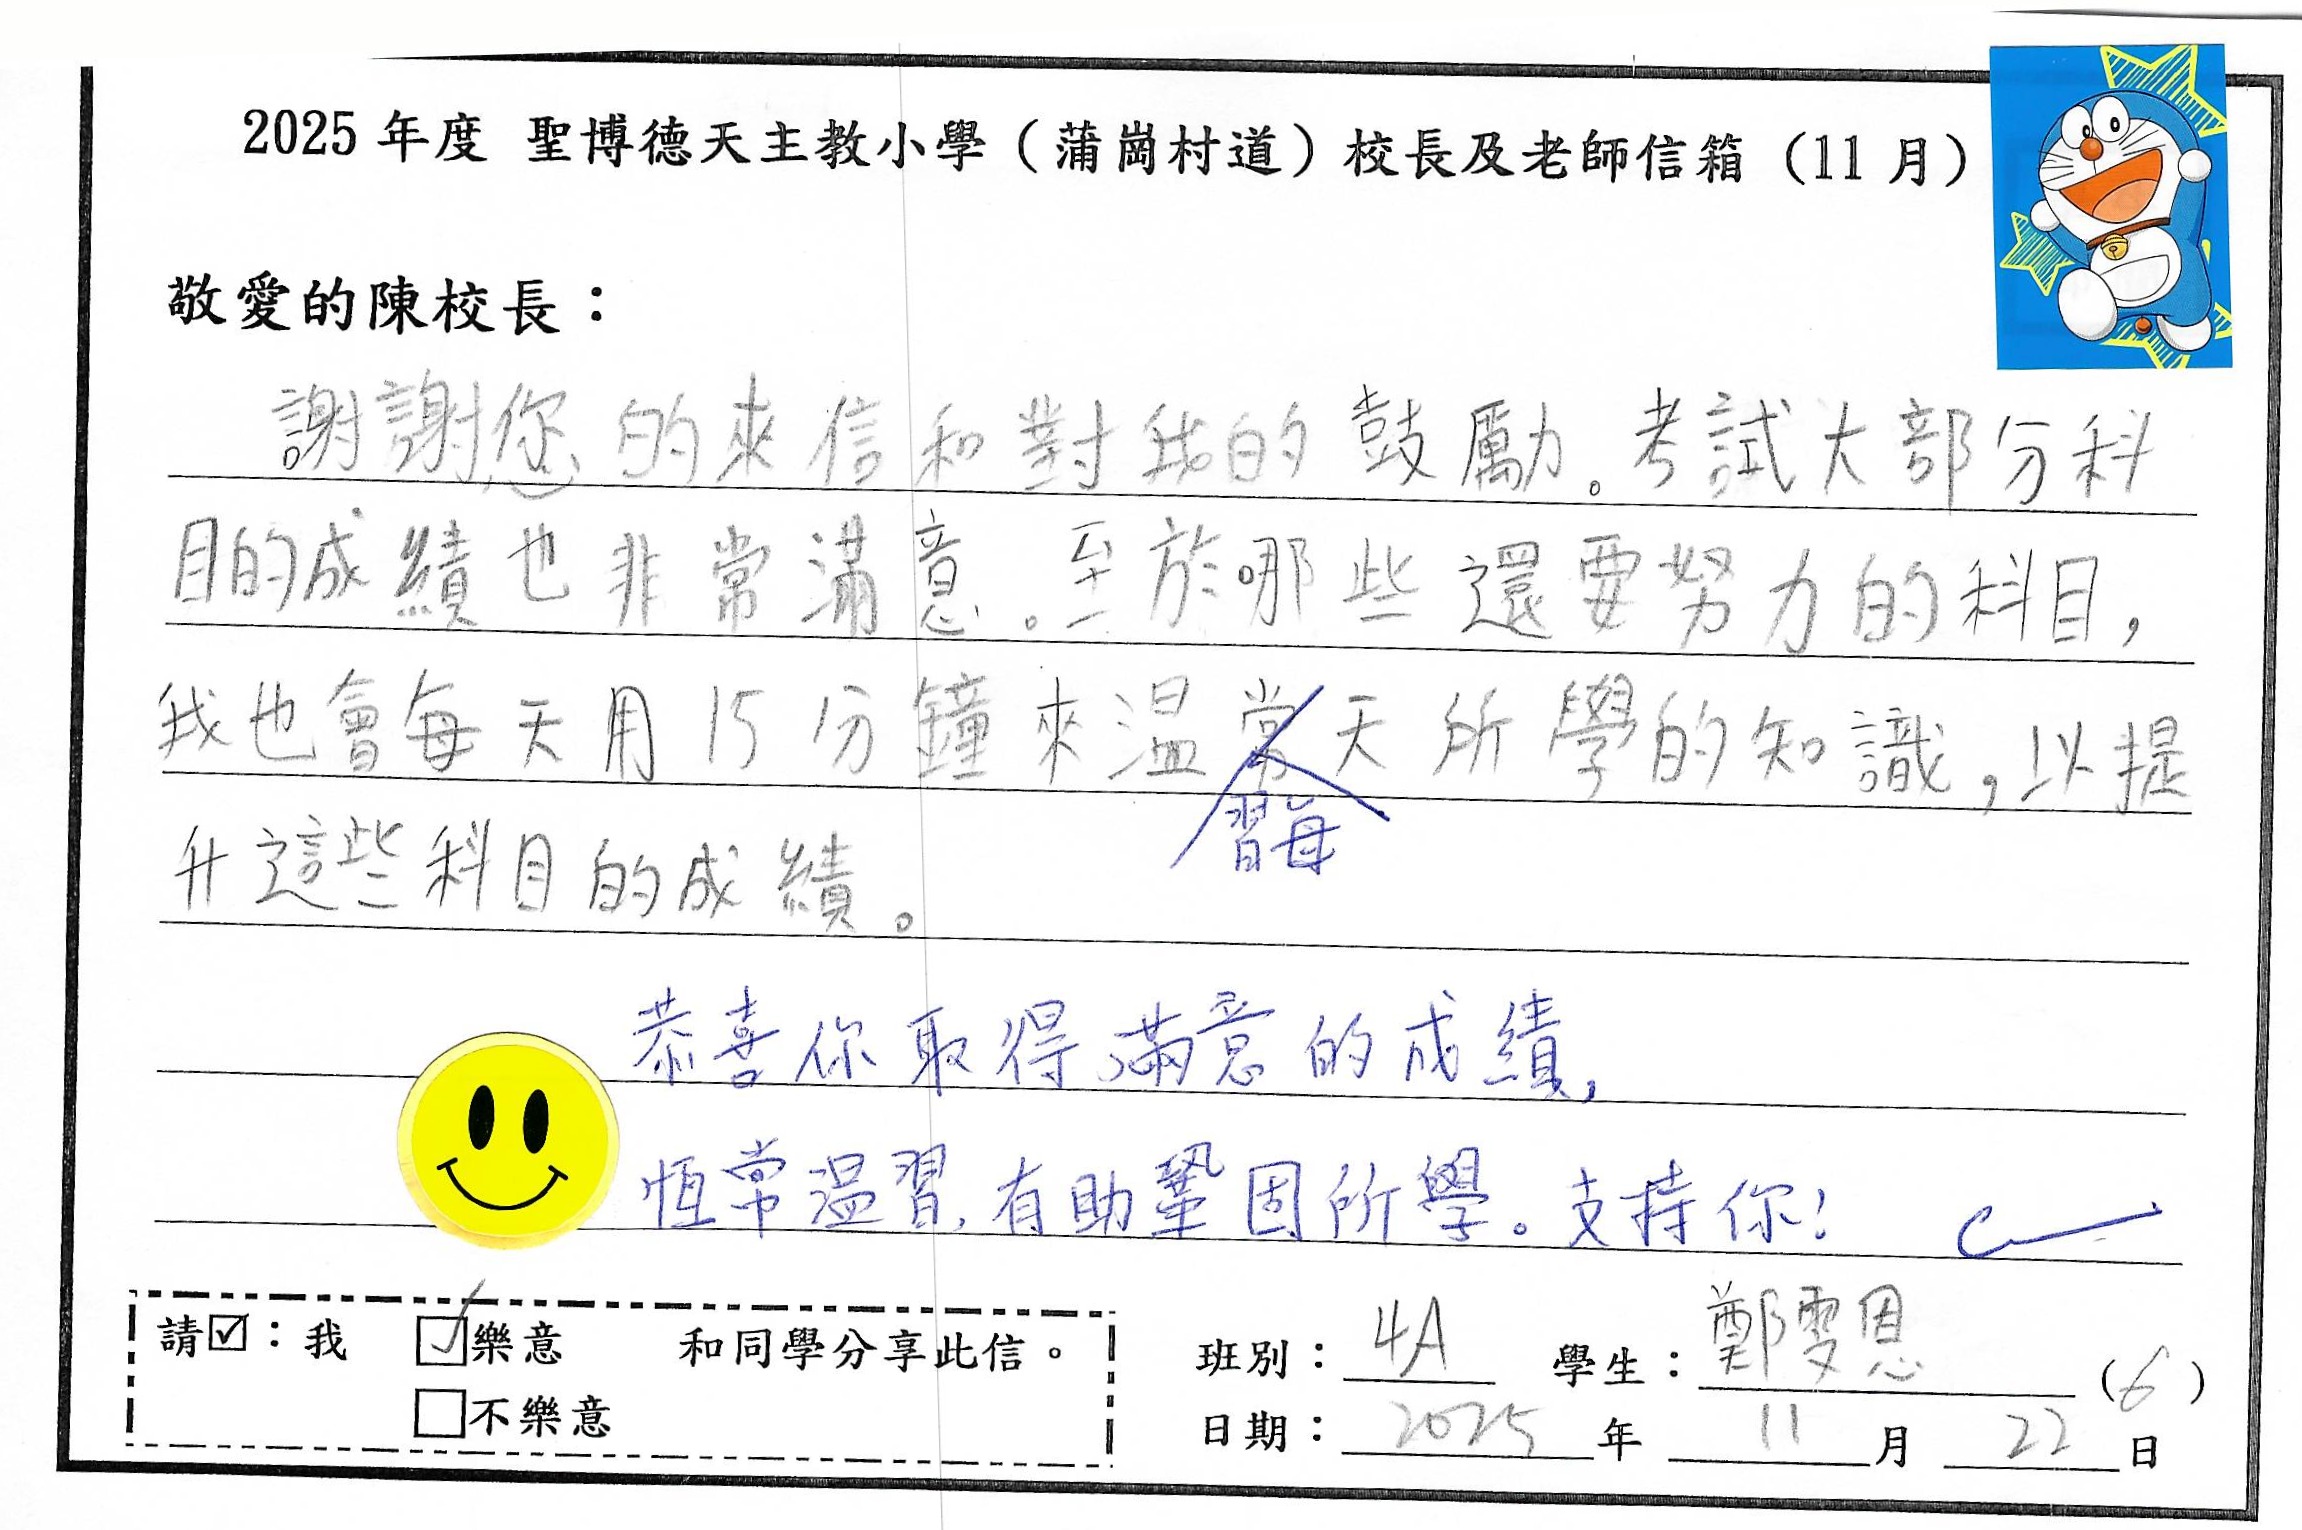 2025 年度 聖博德天主教小學（蒲崗村道）校長及老師信箱（11 月）
敬愛的陳校長：
謝謝您的來信和對我的鼓勵。考試大部分科
目的成績也非常滿意。至於哪些還要努力的科目，
我也會每天用15分鐘來溫常天所學的知識，以提
習每
升這些科目的成績。
恭喜你取得滿意的成績，
恆常溫習，有助鞏固所學。支持你！
請☑：我 ☑樂意 和同學分享此信。
□不樂意
班別：4A 學生：鄭雯恩（6）
日期：2025 年 11 月 22 日